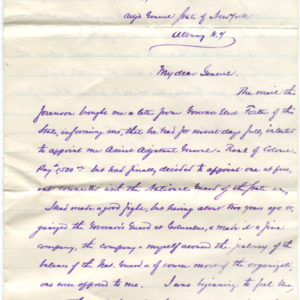 Adj't General State of New York
Albany N.Y.
My dear General.
The mail this
forenoon brought me a letter from Governor Elect Foster of this
State, informing me, that he had for several days fully intended
to appoint me Assist Adjutant General - Rank of Colonel
Pay $1500 - but had finally decided to appoint one at
connected with the National Guard of the State
I had made a good fight, but having about two years ago or-
ganized the Governor's Guard at Columbus, & made it a fine
company, the company & myself aroused the jealousy of the
balance of the Nat. Guard & of course most of the organizati-
ons were opposed to me. I was beginning to feel